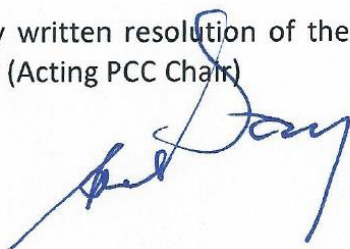 written resolution of the
(Acting PCC Chair)